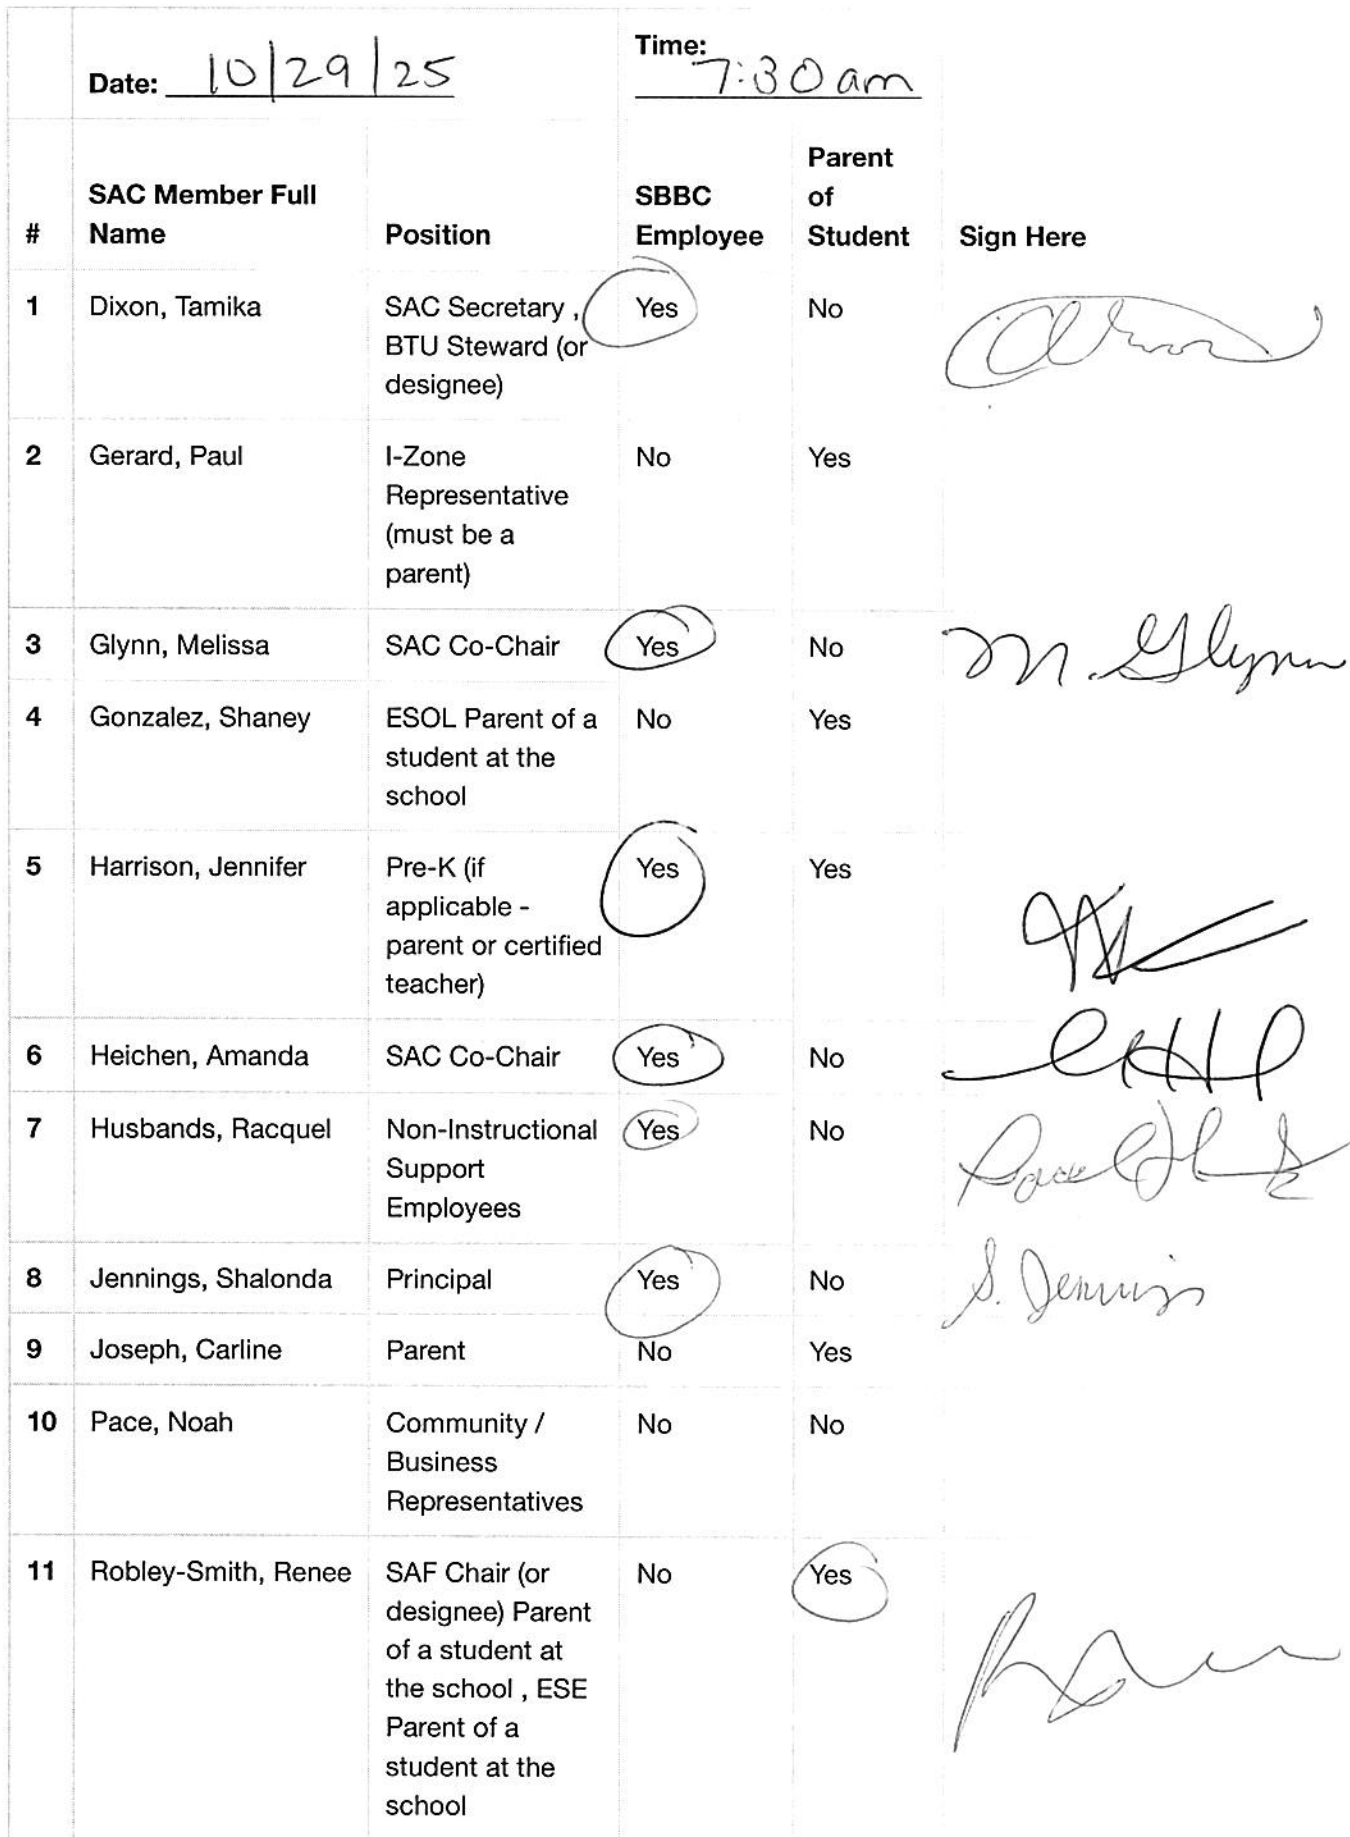 Date: 10/29/25 Time: 7:30 am
# SAC Member Full Name Position SBBC Employee Parent of Student Sign Here
1 Dixon, Tamika SAC Secretary , Yes No
BTU Steward (or
designee)
2 Gerard, Paul I-Zone No Yes
Representative
(must be a
parent)
3 Glynn, Melissa SAC Co-Chair Yes No M. Glynn
4 Gonzalez, Shaney ESOL Parent of a No Yes
student at the
school
5 Harrison, Jennifer Pre-K (if Yes Yes
applicable -
parent or certified
teacher)
6 Heichen, Amanda SAC Co-Chair Yes No
7 Husbands, Racquel Non-Instructional Yes No
Support
Employees
8 Jennings, Shalonda Principal Yes No S. Jennings
9 Joseph, Carline Parent No Yes
10 Pace, Noah Community / No No
Business
Representatives
11 Robley-Smith, Renee SAF Chair (or No Yes
designee) Parent
of a student at
the school , ESE
Parent of a
student at the
school